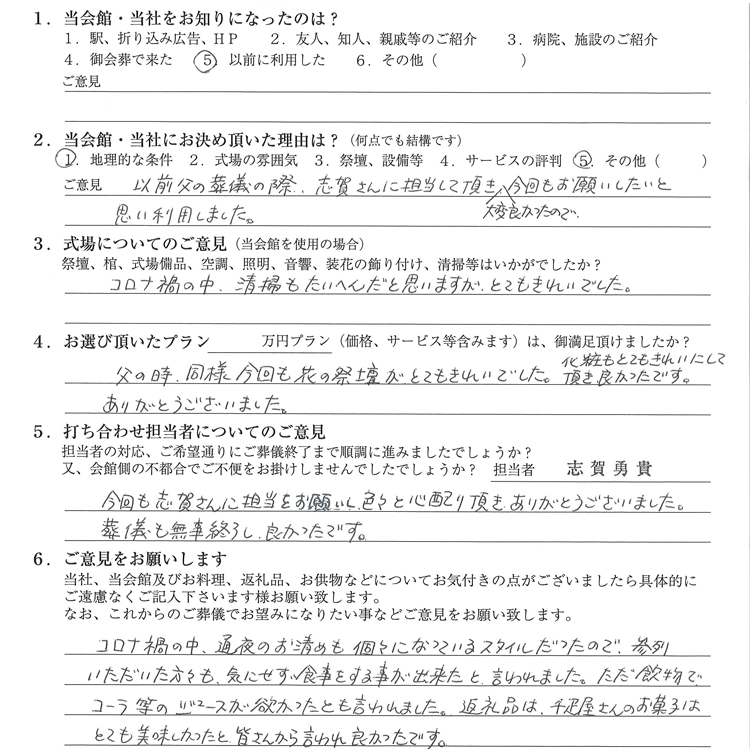 1．当会館・当社をお知りになったのは？
1．駅、折り込み広告、ＨＰ　2．友人、知人、親戚等のご紹介　3．病院、施設のご紹介
4．御会葬で来た　⑤．以前に利用した　6．その他（　　　　　）
ご意見
2．当会館・当社にお決め頂いた理由は？（何点でも結構です）
①．地理的な条件　2．式場の雰囲気　3．祭壇、設備等　4．サービスの評判　⑤．その他（　　　）
ご意見　以前父の葬儀の際、志賀さんに担当して頂き、今回もお願いしたいと
大変良かったので、
思い利用しました。
3．式場についてのご意見（当会館を使用の場合）
祭壇、棺、式場備品、空調、照明、音響、装花の飾り付け、清掃等はいかがでしたか？
コロナ禍の中、清掃もたいへんだと思いますが、とてもきれいでした。
4．お選び頂いたプラン　　　　万円プラン（価格、サービス等含みます）は、御満足頂けましたか？
父の時、同様、今回も花の祭壇がとてもきれいでした。化粧もとてもきれいにして
頂き良かったです。
ありがとうございました。
5．打ち合わせ担当者についてのご意見
担当者の対応、ご希望通りにご葬儀終了まで順調に進みましたでしょうか？
又、会館側の不都合でご不便をお掛けしませんでしたでしょうか？　担当者　志賀勇貴
今回も志賀さんに担当をお願いし、色々と心配り頂き、ありがとうございました。
葬儀も無事終了し、良かったです。
6．ご意見をお願いします
当社、当会館及びお料理、返礼品、お供物などについてお気付きの点がございましたら具体的に
ご遠慮なくご記入下さいます様お願い致します。
なお、これからのご葬儀でお望みになりたい事などご意見をお願い致します。
コロナ禍の中、通夜のお清めも個々になっているスタイルだったので、参列
いただいた方々も、気にせず食事をする事が出来たと、言われました。ただ飲物で
コーラ等のジュースが欲かったとも言われました。返礼品は、千疋屋さんのお菓子は
とても美味しかったと、皆さんから言われ良かったです。